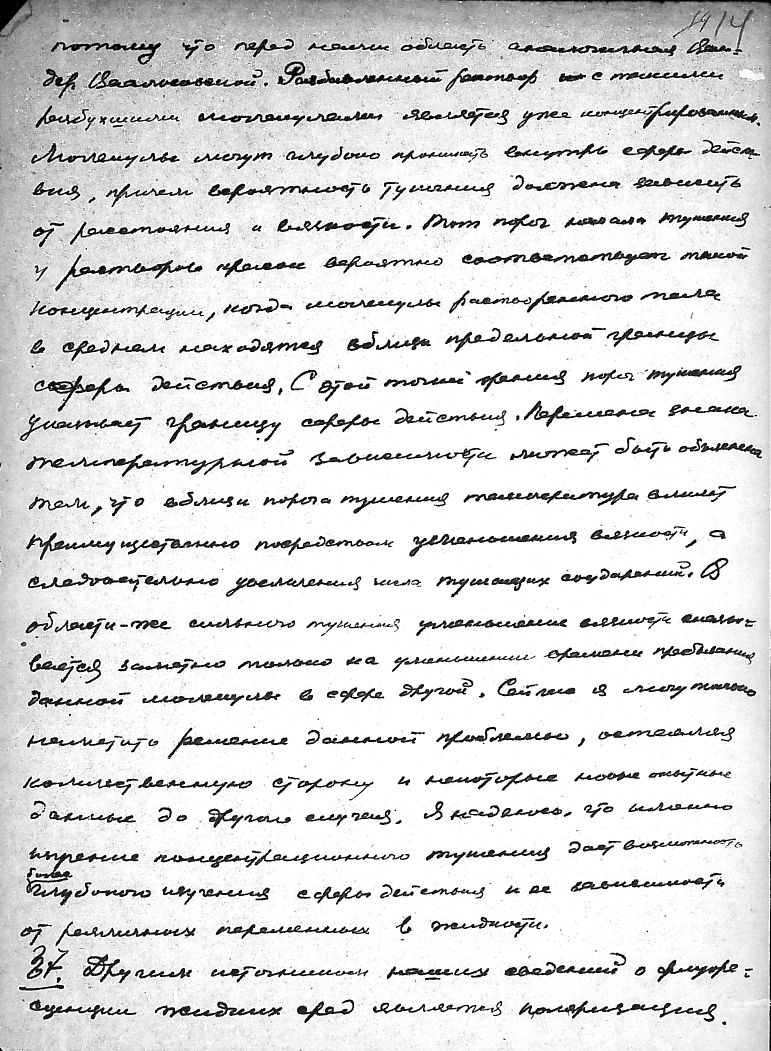 1914
потому что перед нами область аналогичная Ван-
дер Ваальсовской. Разбавленный раствор с такими
разбухшими молекулами является уже концентрированным.
Молекулы могут глубоко проникать внутрь сферы дейст-
вия, причем вероятность тушения должна зависеть
от расстояния и вязкости. Этот порог начала тушения
у растворов красок вероятно соответствует такой
концентрации, когда молекулы растворенного тела
в среднем находятся вблизи предельной границы
сферы действия. С этой точки зрения порог тушения
указывает границу сферы действия. Перемена знака
температурной зависимости может быть объяснена
тем, что вблизи порога тушения температура влияет
преимущественно посредством уменьшения вязкости, а
следовательно увеличения числа тушащих соударений. В
области-же сильного тушения уменьшение вязкости сказы-
вается заметно только на уменьшении времени пребывания
данной молекулы в сфере другой. Сейчас я могу только
наметить решение данной проблемы, оставляя
количественную сторону и некоторые новые опытные
данные до другого случая. Я надеюсь, что именно
изучение концентрационного тушения даст возможность
более
глубокого изучения сферы действия и ее зависимости
от различных переменных в жидкости.
37. Другим источником наших сведений о флуоре-
сценции жидких сред является поляризация.